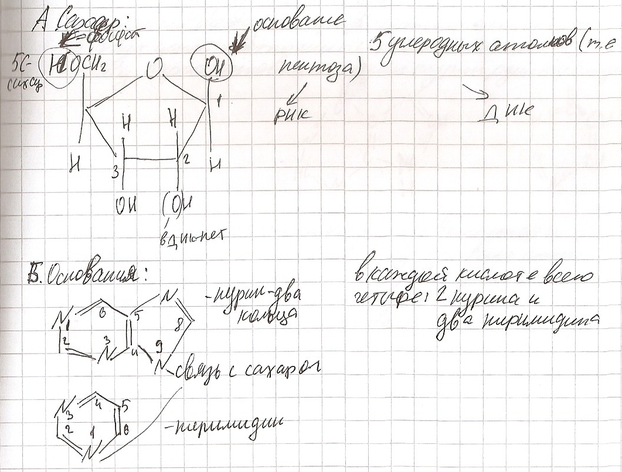 А. Сахар:
фосфат
основание
5 углеродных атомов (т.е
пентоза)
5С-
сахар
HOCH₂
O
OH
РНК
ДНК
1
H
H
H
3
2
H
OH
(OH
в ДНК нет
Б. Основания:
- пурин-два
кольца
в каждой кислоте всего
четыре: 2 пурина и
два пиримидина
N
6
5
N
1
8
2
3
N
4
9
N
- связь с сахаром
N
3
4
5
2
1
6
N
- пиримидин